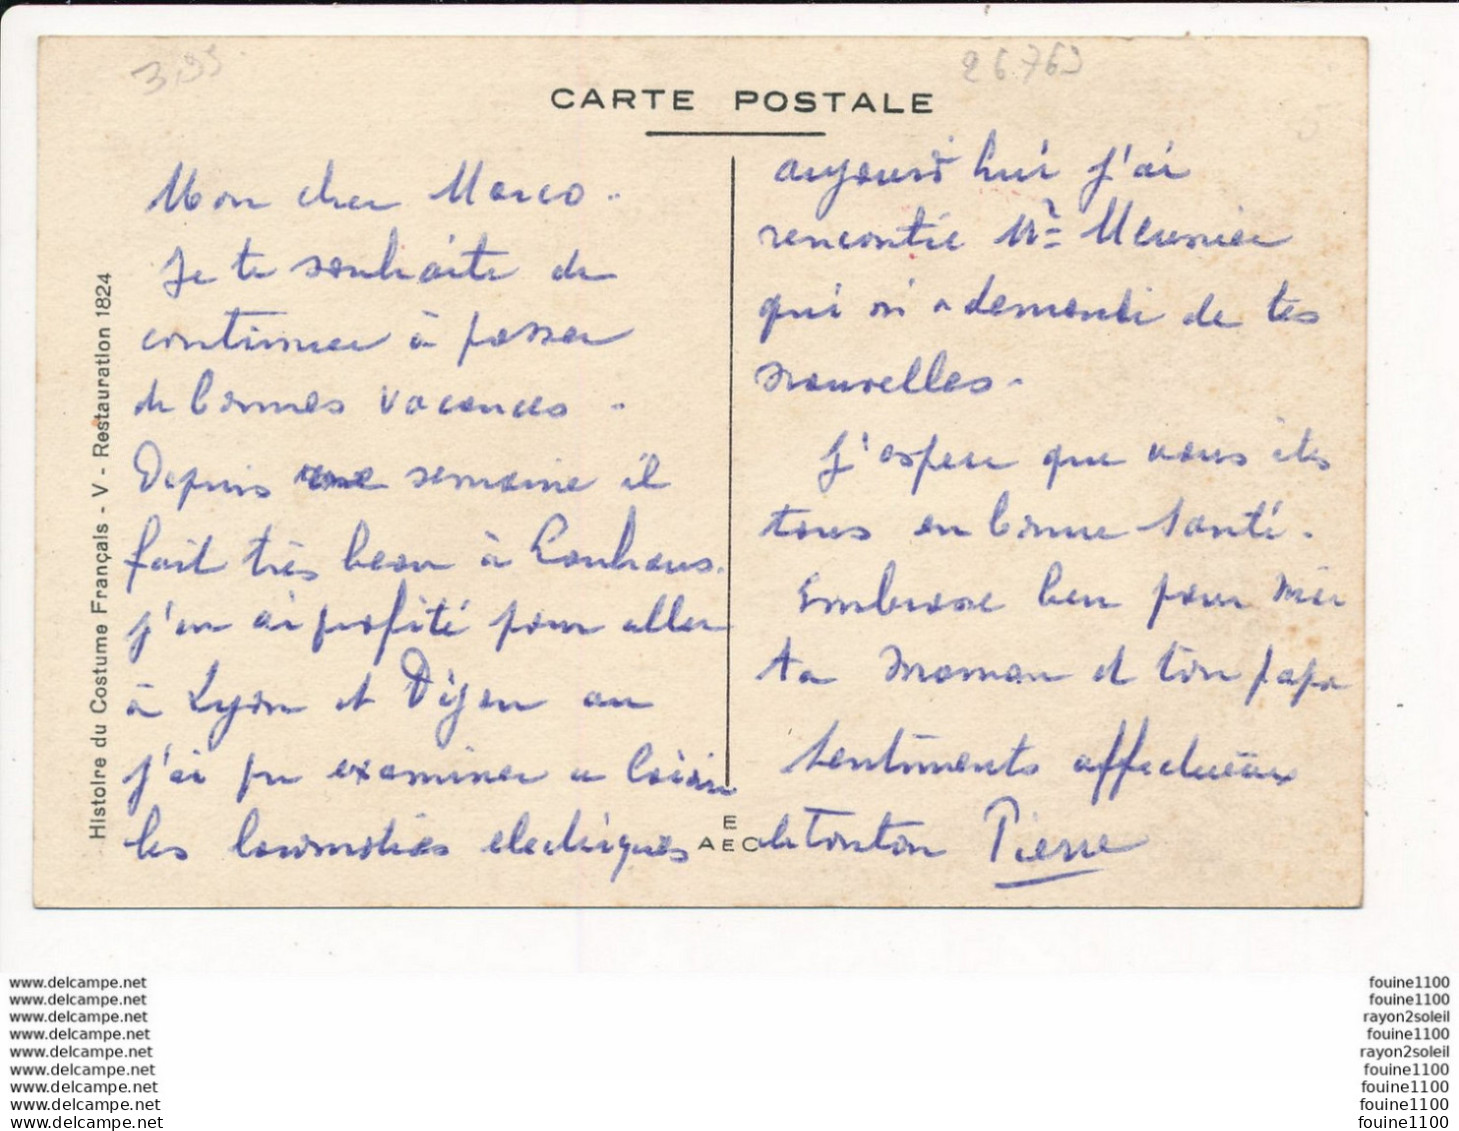 3,95
26763
CARTE POSTALE
Histoire du Costume Français - V - Restauration 1824
Mon cher Marco.
Je te souhaite de
continuer à passer
de bonnes vacances.
Depuis une semaine il
fait très beau à Louhans.
j'en ai profité pour aller
à Lyon et Dijon ou
j'ai pu examiner a loisir
les locomotives electriques
E
AEC
aujourd'hui j'ai
rencontré Mr Meunier
qui m'a demandé de tes
nouvelles.
J'espere que vous êtes
tous en bonne santé.
Embrasse bien pour moi
ta maman et ton papa
Sentiments affectueux
de Tonton Pierre
www.delcampe.net
www.delcampe.net
www.delcampe.net
www.delcampe.net
www.delcampe.net
www.delcampe.net
www.delcampe.net
www.delcampe.net
www.delcampe.net
fouine1100
fouine1100
rayon2soleil
fouine1100
rayon2soleil
fouine1100
fouine1100
fouine1100
fouine1100